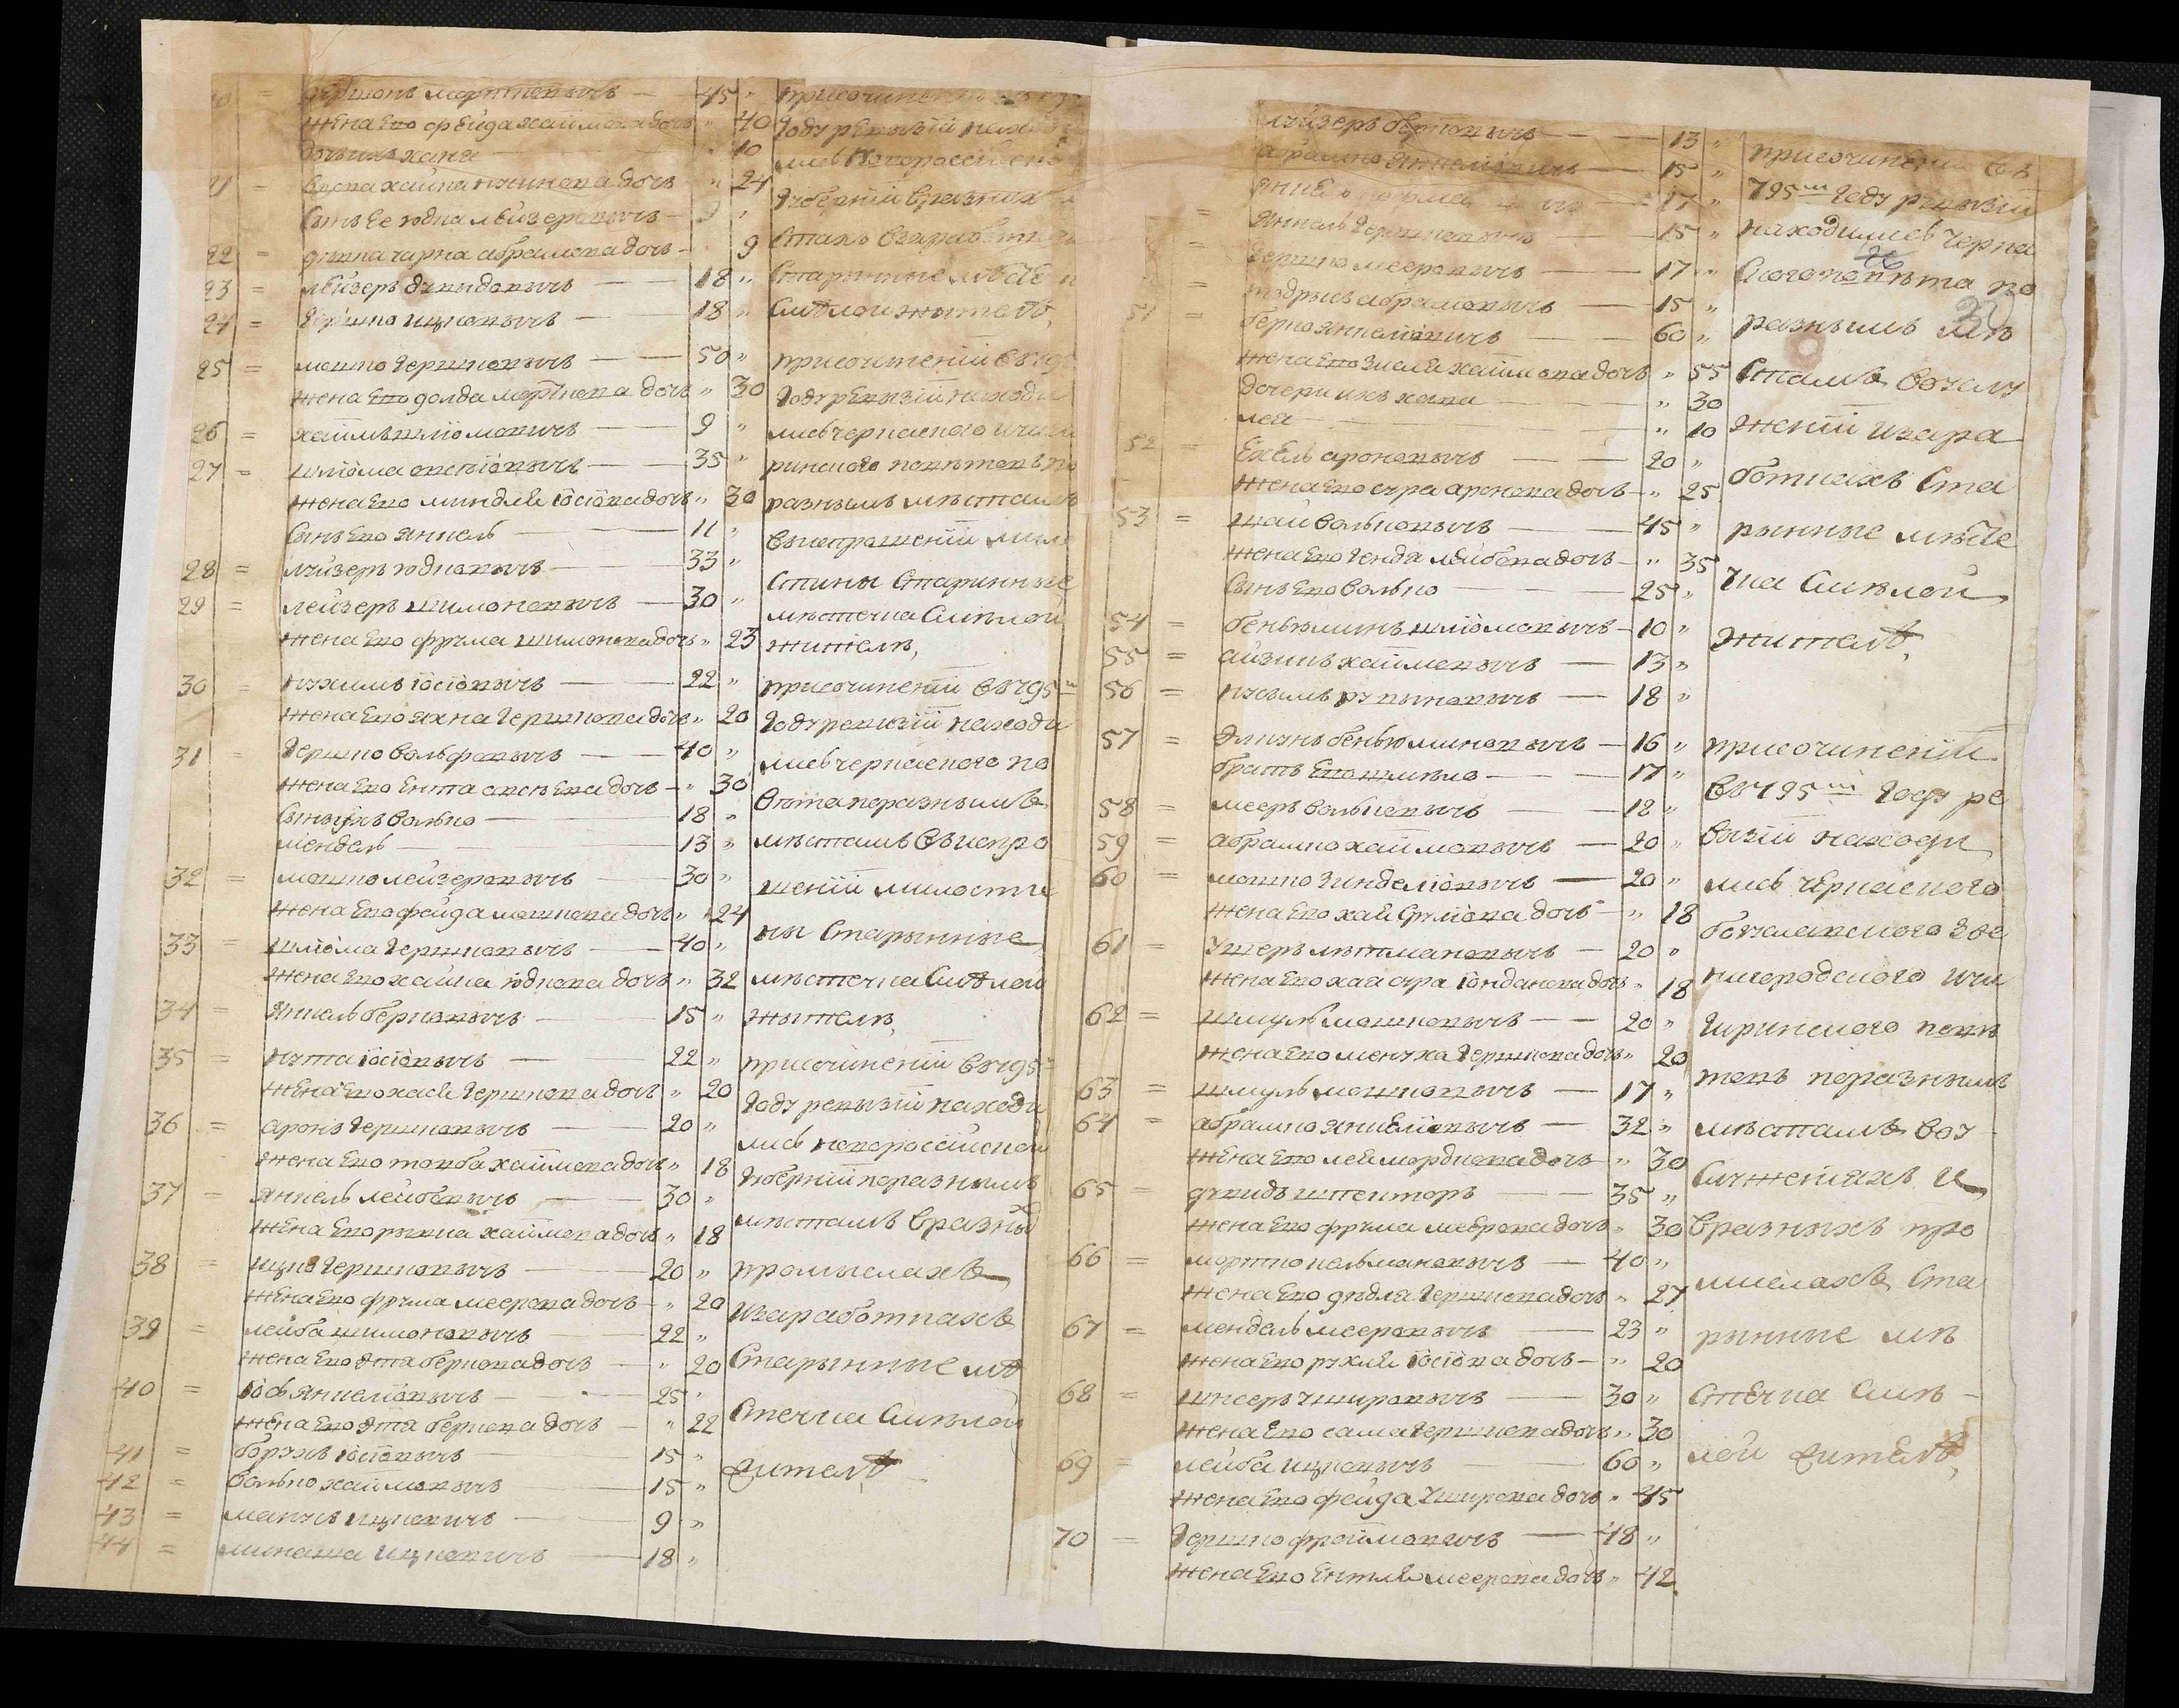 гершонъ мортковичъ — 45 „
жена Его фЕйда хаимова дочь „ 40
дочь ихъ ханя 10
вдова хайка нухимова дочь „ 24
Сынъ Ее юдка лЕйзеровичъ — 9 „
22 = девка чарна абрамова дочь — 9
23 = лЕйзеръ давидовичъ — 18 „
24 = Гершко ицковичъ — 18 „
25 = мошко Гершковичъ — 50 „
жена Его голда морткова дочь „ 30
26 = хаимъ шліомовичъ — 9 „
27 = шліома овсіовичъ — 35 „
жена Его миндля іосіова дочь „ 30
Сынъ Его Янкель — 11 „
28 = лейзеръ юдковичъ — 33 „
29 = лейзеръ шимоновичъ — 30 „
жена Его фрума шимонова дочь „ 23
30 = нухимъ іосіовичъ — 22 „
жена Его яхна Гершкова дочь „ 20
31 = Гершко вольфовичъ — 40 „
жена Его Ента овсѣева дочь — „ 30
Сыны ихъ волько — 18 „
мендель — 13 „
32 = мошко лейзеровичъ — 30 „
жена Его фейда мошкова дочь „ 24
33 = шліома Гершковичъ — 40 „
жена Его хайка юдкова дочь „ 32
34 = Янкель берковичъ — 15 „
35 = нута іосіовичъ — 22 „
жена Его хася Гершкова дочь „ 20
36 = аронъ Гершковичъ — 20 „
жена Его товба хаимова дочь „ 18
37 = янкель лейбовичъ — 30 „
жена Его рывка хаимова дочь „ 18
38 = ицко Гершковичъ — 20 „
жена Его фрума меерова дочь — „ 20
39 = лейба шимоновичъ — 22 „
жена Его Этя беркова дочь — „ 20
40 = іось янкеліовичъ — 25 „
жена Его Этя беркова дочь — „ 22
41 = борухъ іосіовичъ — 15 „
42 = волько хаимовичъ — 15 „
43 = манусъ ицковичъ — 9 „
44 = минаша ицковичъ — 18 „
Году рЕвизій
Новороссійской
Губерніи въ разныхъ
Стахъ
Старынные мѣсте
Смѣлои жытелѣ,
присочиненіи въ 795
Году рЕвизій находи
лись черкаского и чиги
ринского повѣтовъ по
разнымъ мѣстамъ
въ испрашеніи мило
Стины Старинные
мѣстечка Смѣлой
жителѣ,
присочиненіи въ 795
Году ревизій находи
лись черкаского по
вѣта по разнымъ
мѣстамъ въ испро
шеніи милосты
ны Старынные
мѣстечка Смѣлой
жытелѣ,
присочиненіи въ 795
Году ревизій находи
лись новоросійской
Губерній по разнымъ
мѣстамъ въ разныхъ
промыслахъ
и заработкахъ
Старынные мѣ
Стечка Смѣлой
жителѣ
лейзеръ берковичъ — 13 „
абрамко Янкеліовичъ — 15 „
17 „
Янкель Гершковичъ — 15 „
Гершко мееровичъ — 17 „
тодрысъ абрамовичъ — 15 „
51 = берко янкеліовичъ — 60 „
жена Его зисля хаимова дочь „ 55
дочери ихъ хана „ 30
лея „ 10
52 = Ехель ароновичъ — 20 „
жена Его сура аронова дочь — „ 25
53 = шаи вольковичъ — 45 „
жена Его Генда лейбова дочь — „ 35
Сынъ Его волько — 25 „
54 = беньюминъ шліомовичъ — 10 „
55 = айзикъ хаимовичъ — 13 „
56 = нусымъ рувыновичъ — 18 „
57 = Элкунъ беньюминовичъ — 16 „
братъ Его шмѣло — 17 „
58 = мееръ вольковичъ — 18 „
59 = абрамко хаимовичъ — 20 „
60 = мошко зинделіовичъ — 20 „
жена Его хая Сруліова дочь — „ 18
61 = Ушеръ литмановичъ — 20 „
жена Его хая сура іонданова дочь „ 18
62 = шмуль мошковичъ — 20 „
жена Его менуха Гершкова дочь „ 20
63 = шмуль мошковичъ — 17 „
64 = абрамко янкЕліовичъ — 32 „
жена Его лея мордкова дочь — „ 30
65 = давидъ шпекторъ — 35 „
жена Его фрума меерова дочь „ 30
66 = мортко кельмановичъ — 40 „
жена Его дѣдля Гершкова дочь „ 27
67 = мендель мееровичъ — 23 „
жена Его рухля іосіова дочь — „ 20
68 = шпсеръ Ушировичъ — 30 „
жена Его сама Гершкова дочь „ 30
69 = лейба ицковичъ — 60 „
жена Его фейда Уширова дочь „ 45
70 = Гершко фроимовичъ — 48 „
жена Его Ентля меерова дочь „ 42
присочиненіи въ
795м Году ревизій
находились черка
Ского повѣта по
30
разнымъ мѣ
Стамъ въ услу
женіи и зара
боткахъ Ста
рынные мѣсте
чка Смѣлой
жителѣ,
присочиненіи
въ 795м Году ре
визій находи
лись чЕркаского
богуславского зве
нигородского и чи
гиринского повѣ
товъ по разнымъ
мѣстамъ в оу
служеніяхъ и
въ разныхъ про
мислахъ Ста
рынные мѣ
стЕчка Смѣ-
лой жителѣ,